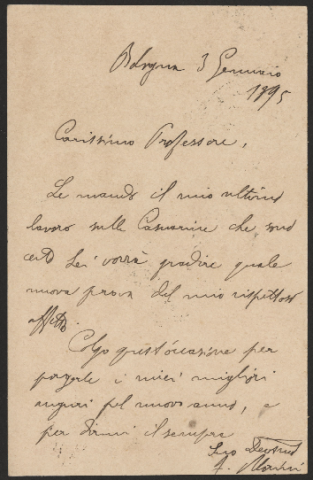 Bologna 3 Gennaio
1895
Carissimo Professore,
Le mando il mio ultimo
lavoro sulle Casuarine che sono
certo Lei vorrà gradire quale
nuova prova del mio rispettoso
affetto.
Colgo quest'occasione per
porgerle i miei migliori
auguri pel nuovo anno, e
per dirmi il sempre
Suo Devotmo
F. Morini